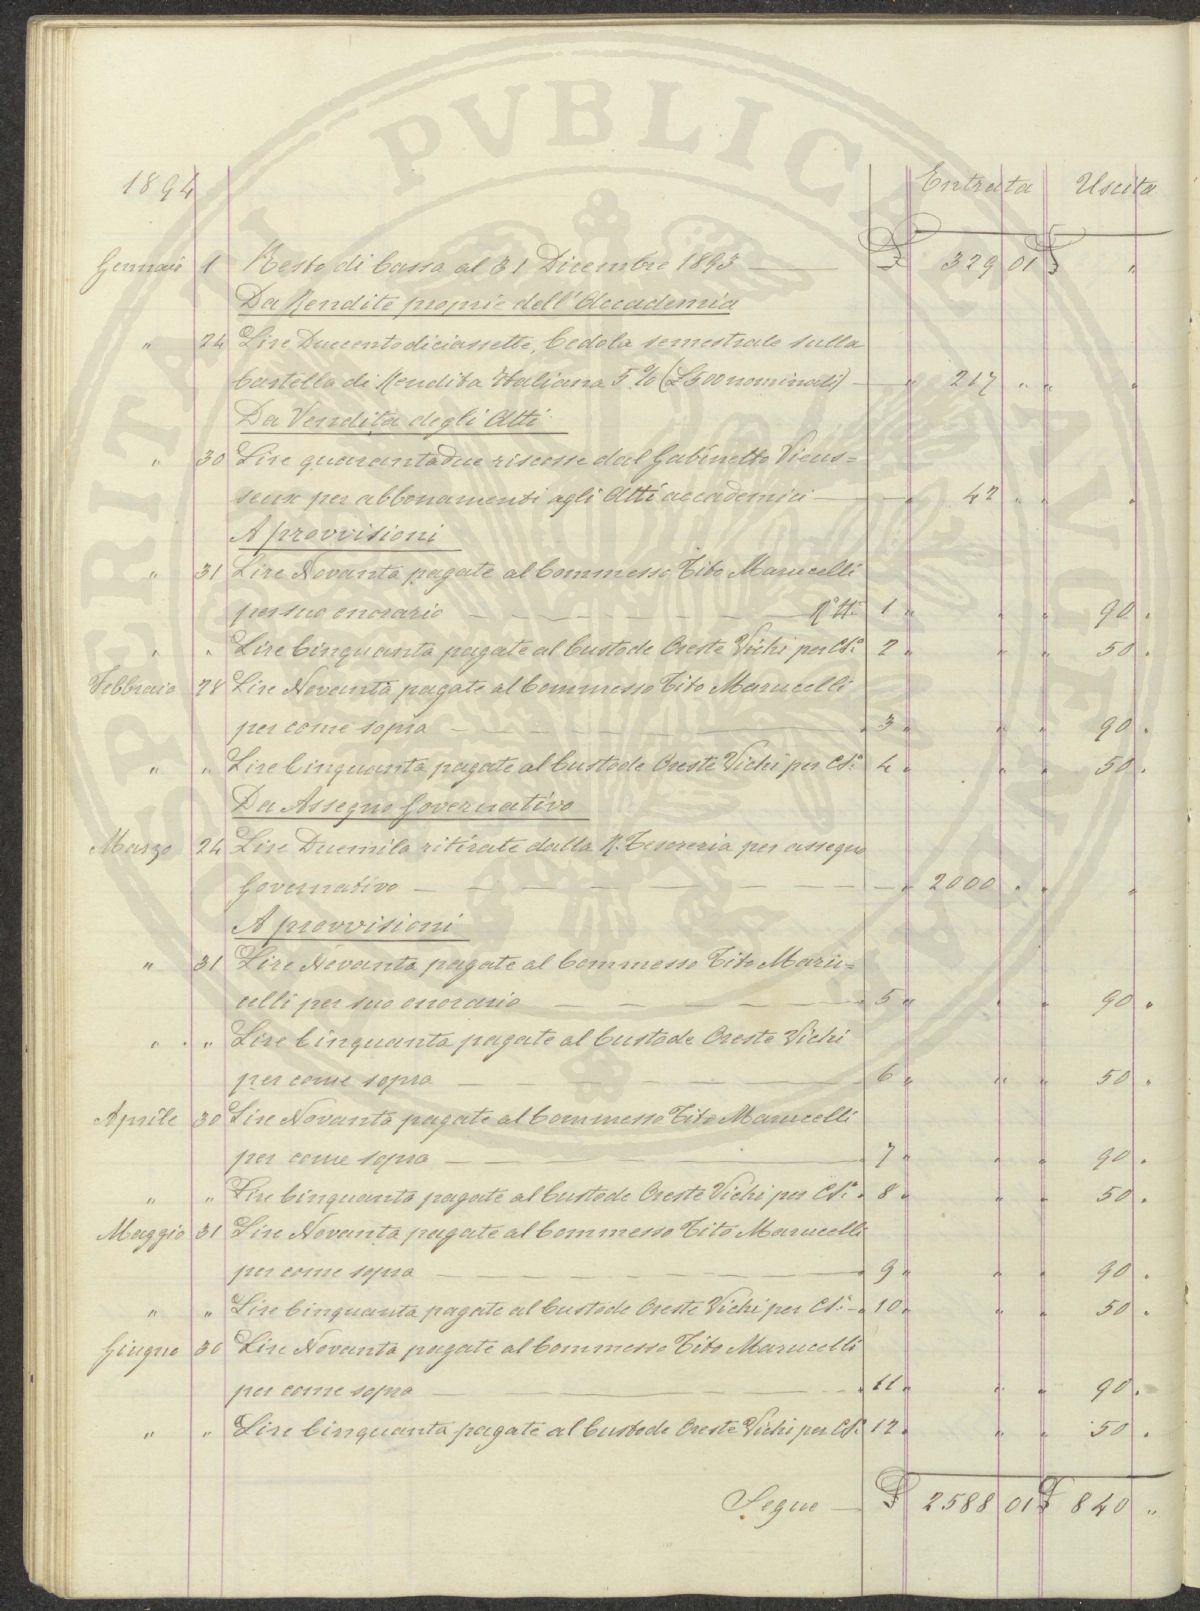 1894 Entrata Uscita
Gennaio 1 Resto di Cassa al 31 Dicembre 1893 — £ 329 01 £ "
Da Rendite proprie dell'Accademia
" 24 Lire Duecentodiciassette, Cedola semestrale sulla
Cartella di Rendita Italiana 5% (£500 nominali) — " 217 " " "
Da Vendita degli Atti
" 30 Lire quarantadue riscosse dal Gabinetto Vieus=
seux per abbonamenti agli Atti accademici — " 42 " " "
A provvisioni
" 31 Lire Novanta pagate al Commesso Tito Marucelli
per suo onorario — 1 " " " 90 "
" " Lire Cinquanta pagate al Custode Oreste Vichi per Cs.ª 2 " " " 50 "
Febbraio 28 Lire Novanta pagate al Commesso Tito Marucelli
per come sopra — " 3 " " " 90 "
" " Lire Cinquanta pagate al Custode Oreste Vichi per Cs.ª 4 " " " 50 "
Da Assegno Governativo
Marzo 24 Lire Duemila ritirate dalla R. Tesoreria per assegno
Governativo — " 2000 " " "
A provvisioni
" 31 Lire Novanta pagate al Commesso Tito Maru=
celli per suo onorario — " 5 " " " 90 "
" " Lire Cinquanta pagate al Custode Oreste Vichi
per come sopra — 6 " " " 50 "
Aprile 30 Lire Novanta pagate al Commesso Tito Marucelli
per come sopra — 7 " " " 90 "
" " Lire Cinquanta pagate al Custode Oreste Vichi per Cs.ª " 8 " " " 50 "
Maggio 31 Lire Novanta pagate al Commesso Tito Marucelli
per come sopra — " 9 " " " 90 "
" " Lire Cinquanta pagate al Custode Oreste Vichi per Cs.ª " 10 " " " 50 "
Giugno 30 Lire Novanta pagate al Commesso Tito Marucelli
per come sopra — " 11 " " " 90 "
" " Lire Cinquanta pagate al Custode Oreste Vichi per Cs.ª 12 " " " 50 "
Segue — £ 2588 01 £ 840 "
PROSPERITATI PVBLICAE AVGENDAE